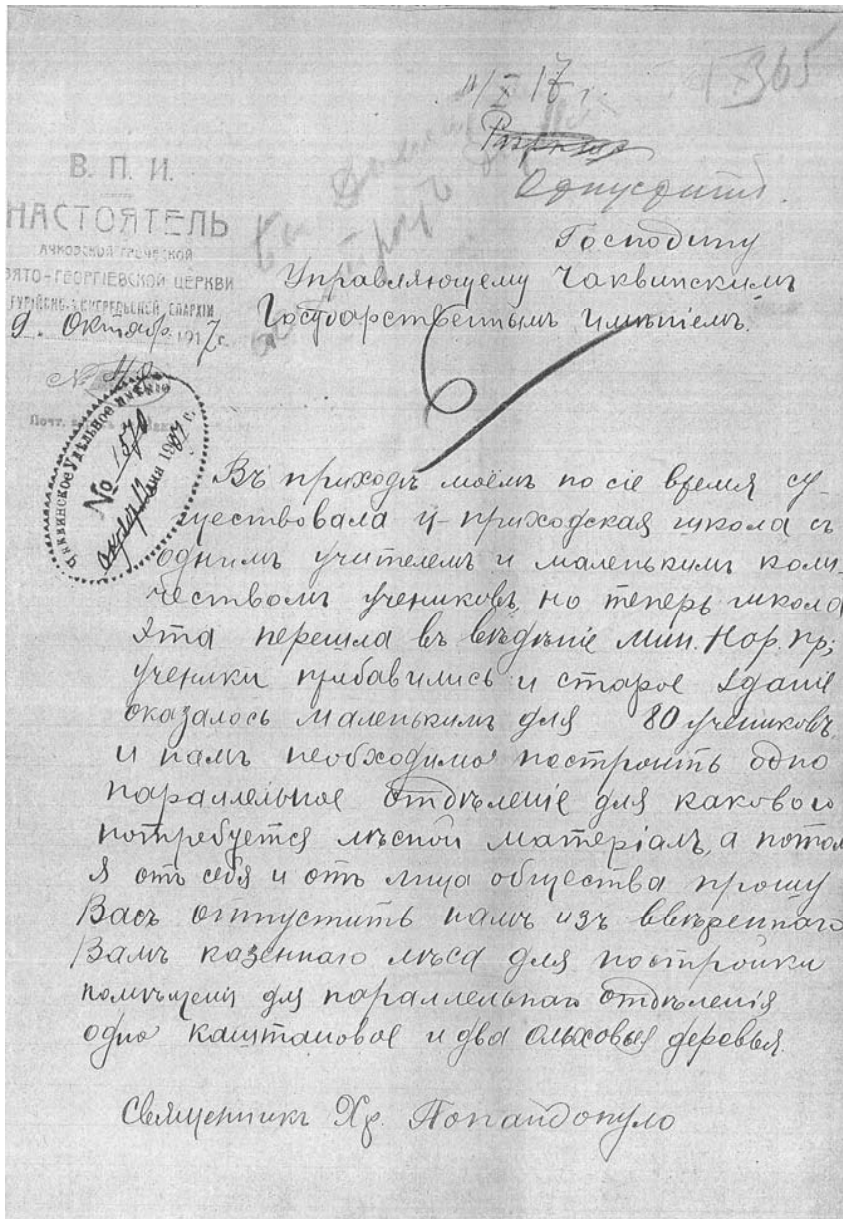 11/X 17 г.
365
Отпустить.
В. П. И.
НАСТОЯТЕЛЬ
АЧКОВСКОЙ ГРЕЧЕСКОЙ
СВЯТО-ГЕОРГІЕВСКОЙ ЦЕРКВИ
ГУРІЙСКО-МИНГРЕЛЬСКОЙ ЕПАРХІИ
9. Октябр. 1917 г.
№ 40
Почт.
Господину
Управляющему Чаквинскимъ
Государственнымъ Имѣніемъ.
Чаквинское Удѣльное Имѣніе
№ 1570
октяб 12 дня 1917 г.
Въ приходѣ моёмъ по сіе время су-
ществовала ц-приходская школа съ
однимъ учителемъ и маленькимъ коли-
чествомъ учениковъ, но теперь школа
эта перешла въ вѣдѣніе Мин. Нар. Пр;
ученики прибавились и старое зданіе
оказалось маленькимъ для 80 учениковъ,
и намъ необходимо построить одно
параллельное отдѣленіе для какового
потребуется лѣсной матеріалъ, а потом
я отъ себя и отъ лица общества прошу
Васъ отпустить намъ изъ ввѣреннаго
Вамъ казеннаго лѣса для постройки
помѣщенія для параллельнаго отдѣленія
одно каштановое и два ольховыя деревья.
Священникъ Хр. Попандопуло